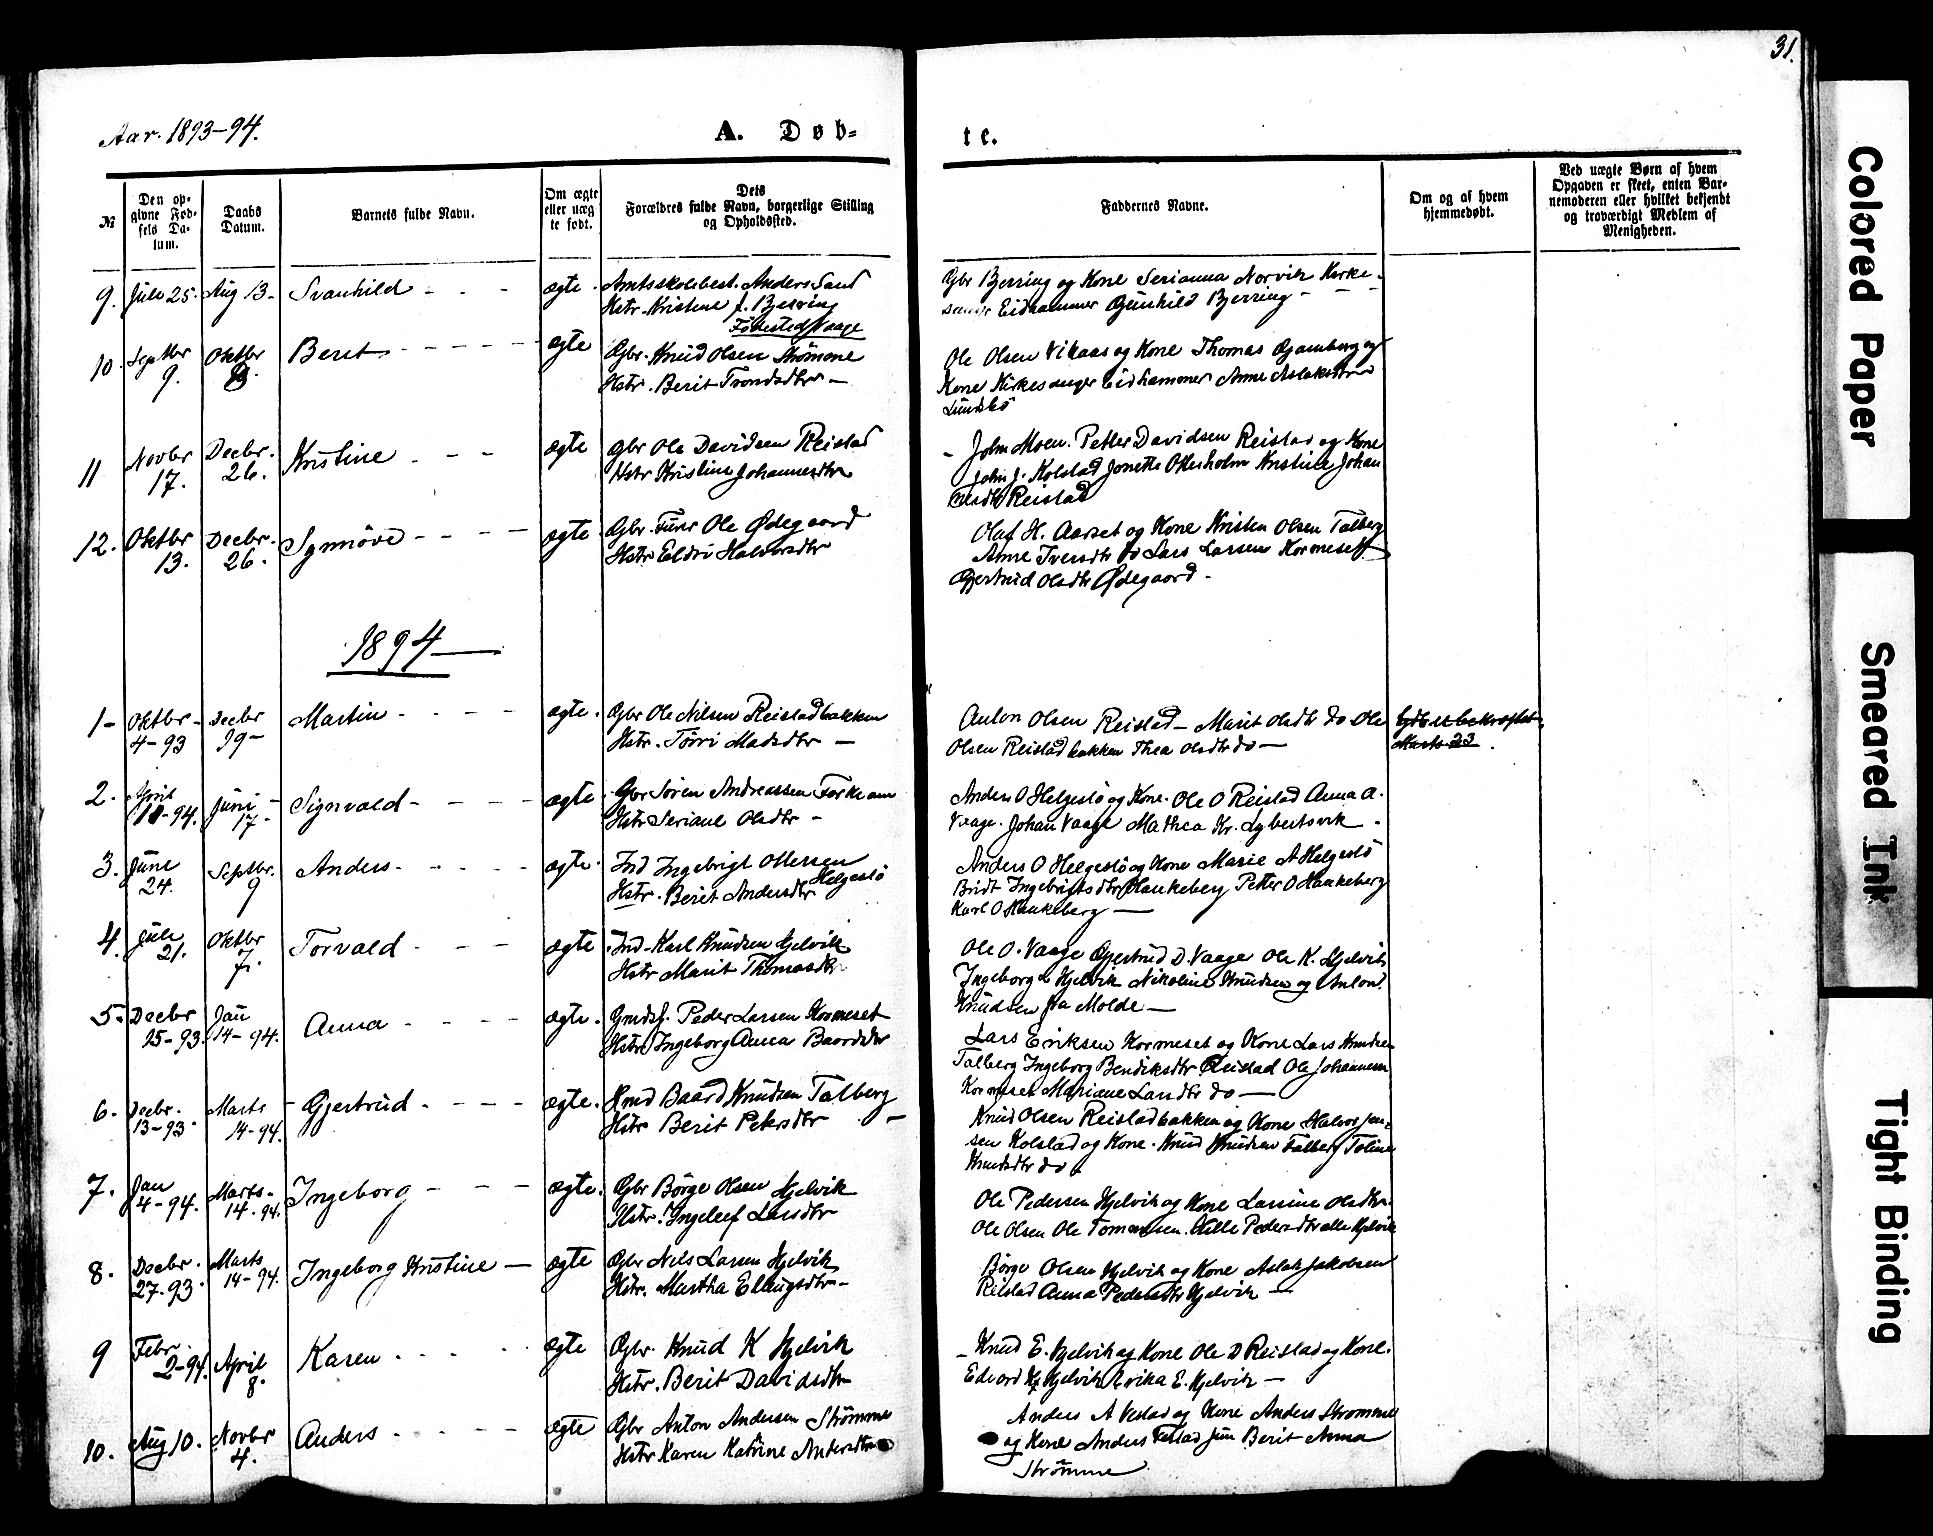 31.
Aar. 1893-94.
A. Døb-
te.
№
Den op-
givne Fød-
sels Da-
tum.
Daabs
Datum.
Barnets fulde Navn.
Om ægte
eller uæg
te født.
Dets
Forældres fulde Navn, borgerlige Stilling
og Opholdssted.
Faddernes Navne.
Om og af hvem
hjemmedøbt.
Ved uægte Børn af hvem
Opgaven er skeet, enten Bar-
nemoderen eller hvilket bekjendt
og troværdigt Medlem af
Menigheden.
9. Juli 25. Aug 13- Svanhild - - - ægte. Amtsskolebest. Anders Sand
Hstr. Kristine f. Bjerring
Fødested Vaage
Gbr Bjerring og Kone Serianna Norvik Kirke-
sanger Eidhammer Gunhild Bjerring -
10. Septbr
9. Oktbr
8. Beret - - - - - ægte Gbr. Knud Olsen Strømme
Hstr. Berit Trondsdtr -
Ole Olsen Vikaas og Kone Thomas Gjamberg og
Kone Kirkesanger Eidhammer Anne Aslaksdtr
11 Novbr
17. Decbr.
26. Kristine - - - ægte gbr Ole Davidsen Reistad
Hstr Kristine Johannesdtr
- John Moen. Petter Davidsen Reistad og Kone
John J. Kolstad Jonette Otterholm Kristine Johan
nesdtr Reistad
12. Oktbr
13. Decbr.
26. Synnöve - - - - ægte. Gbr. Ole Ødegaard
Hstr Eldri Halvorsdtr
Olaf H. Aarset og Kone Kristen Olsen Talberg
Anne Iversdtr do Lars Larsen Kormeset
Gjertrud Olsdtr Ødegaard -
1894
1- Oktbr-
4-93 Decbr
19- Martin - - - - ægte. Gbr Ole Nilsen Reistadbakken
Hstr. Madsdtr -
Anton Olsen Reistad - Marit Olsdtr do Ole
Olsen Reistadbakken Thea Olsdtr do -
bekræftet
Marts 23.
2. April
-94. Juni-
17- Signvald - - - - ægte. Gbr Sören Andreassen
Hstr Seriane Olsdtr -
Anders O Helgesö og Kone. Ole O Reistad Anna A.
Vaage. Johan Vaage Mathea Kr. Lybertsvik -
3. Juni
24. Septbr.
9 Anders - - - - ægte. Ind Ingebrigt Ottersen
Helgesö
Hstr. Berit Andersdtr
Anders O Helgesö og Kone Marie A Helgesö
Bridt Ingebrigtsdtr Haukeberg Petter O Haukeberg
Karl O Haukeberg -
4. Juli
21. Oktbr
7. Torvald - - - ægte. Ind. Karl Knudsen Hjelvik
Hstr Marit Thomasdtr
Ole O. Vaage Gjertrud D. Vaage Ole K. Hjelvik
Ingeborg Hjelvik Nikoline Knudsen og Anton
Knudsen fra Molde -
5. Decbr
25-93. Jan
14-94. Anna - - - - ægte. Gmdsf. Peder Larsen Kormeset
Hstr Ingeborg Anna Baardsdtr
Lars Eriksen Kormeset og Kone Lars Knudsen
Talberg Ingeborg Bendiksdtr Reistad Ole Johannesen
Kormeset Mariane Larsdtr do -
6. Decbr.
13-93. Marts
14-94. - Gjertrud - - - - ægte. Hmd Baard Knudsen Talberg
Hstr Berit Petersdtr -
Knud Olsen Reistadbakken og Kone Halvor Jen-
sen Kolstad og Kone. Knud Knudsen Talberg Toline
Knudsdtr do.
7. Jan
4-94. Marts-
14.94. Ingeborg - - - ægte. Gbr Börge Olsen Hjelvik
Hstr. Ingeleef Larsdtr
Ole Pedersen Hjelvik og Kone Larsine Olsdtr.
Ole Olsen Ole Tommesen. Pedersdtr alle Hjelvik
8. Decbr.
27-93. Marts
14-94. Ingeborg Kristine - ægte Gbr Nils Larsen Hjelvik
Hstr. Martha Ellingsdtr -
Börge Olsen Hjelvik og Kone Aslak Jakobsen
Reistad Anna Pedersdtr Hjelvik -
9 Febr.
2-94. April
8. Karen - - - - ægte Gbr. Knud K Hjelvik
Hstr. Berit Davidsdtr
- Knud E. Hjelvik og Kone Ole D Reistad og Kone.
Edvard K. Hjelvik Erika E. Hjelvik -
10. Aug 10. Novbr
4. Anders - - - - ægte Gbr Anton Andersen Strømme
Hstr Karen Katrine Antersdtr
Anders A Vestad og Kone Anders Strømme
og Kone Anders Vestad jun Berit Anna
Strømme
Colored Paper
Smeared Ink
Tight Binding